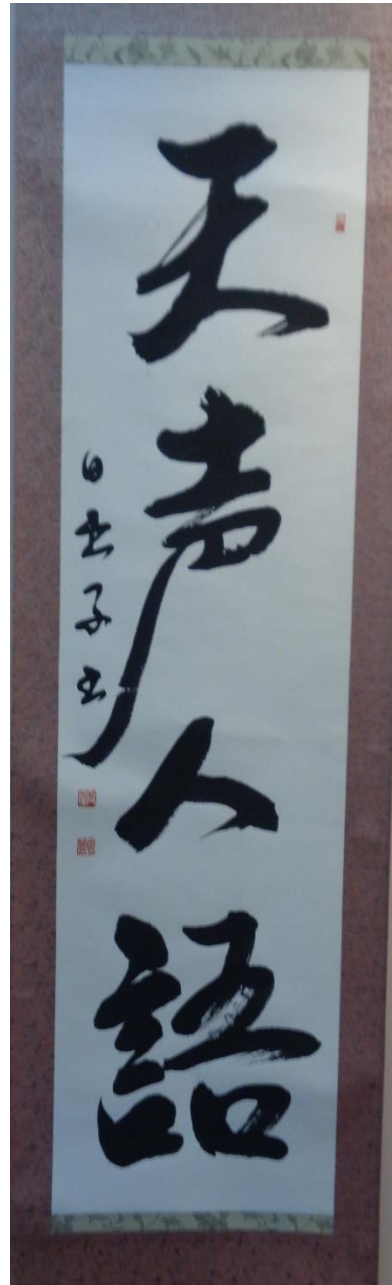 天声人語
日出子書